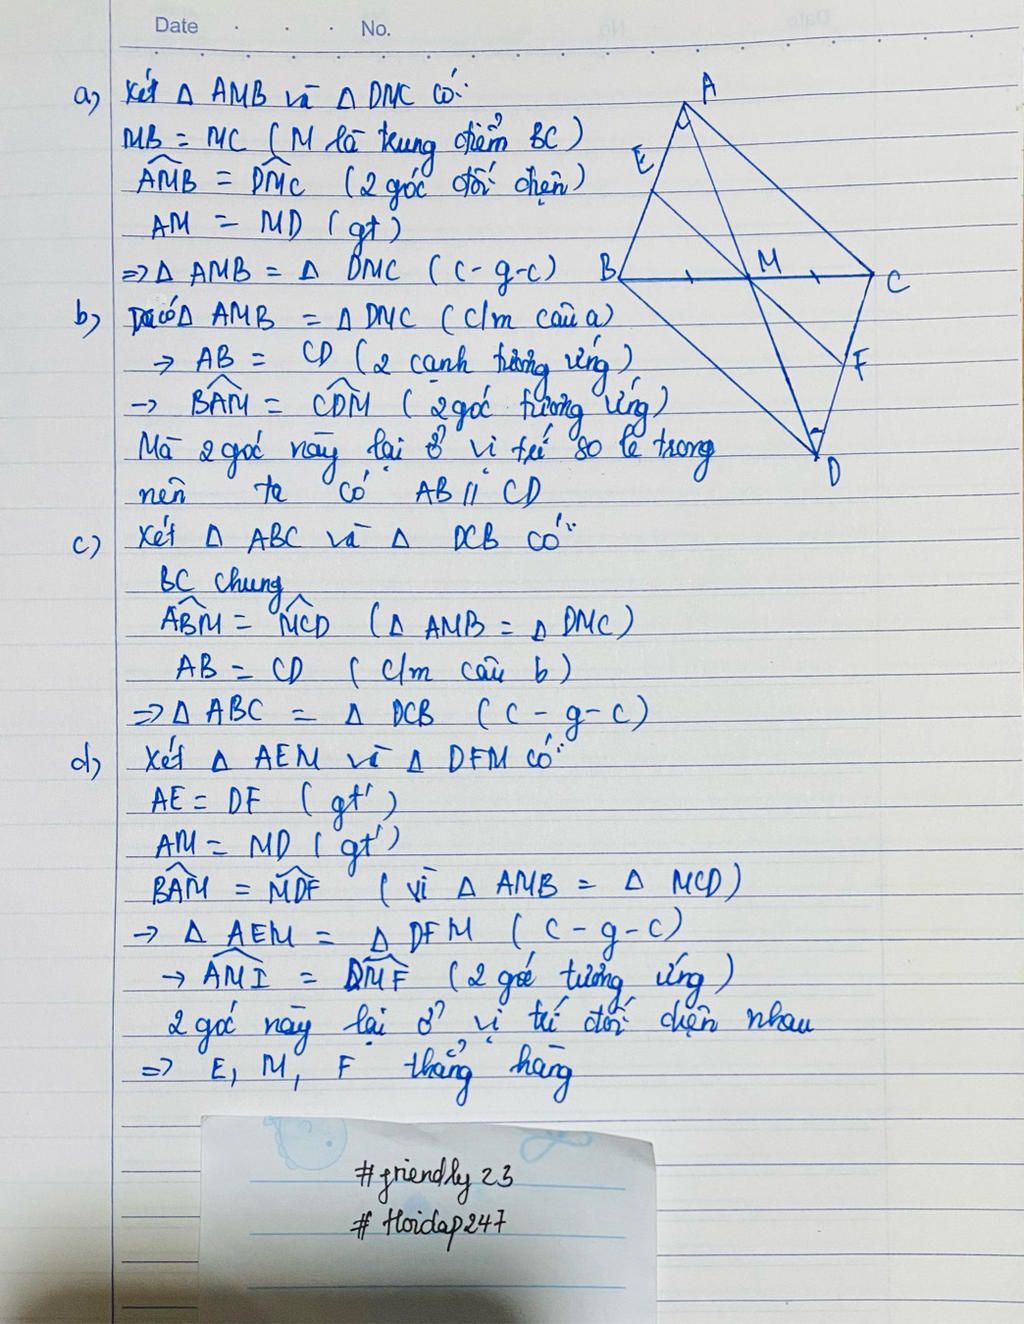 Date . . . No.
a) Xét Δ AMB và Δ DMC có:
MB = MC (M là trung điểm BC)
$\widehat{AMB}$ = $\widehat{DMC}$ (2 góc đối diện)
AM = MD (gt)
=> Δ AMB = Δ DMC (c-g-c)
b) có Δ AMB = Δ DMC (c/m câu a)
→ AB = CD (2 cạnh tương ứng)
→ $\widehat{BAM}$ = $\widehat{CDM}$ (2 góc tương ứng)
Mà 2 góc này lại ở vị trí so le trong
nên ta có AB // CD
c) Xét Δ ABC và Δ DCB có:
BC chung
$\widehat{ABM}$ = $\widehat{MCD}$ (Δ AMB = Δ DMC)
AB = CD (c/m câu b)
=> Δ ABC = Δ DCB (c-g-c)
d) Xét Δ AEM và Δ DFM có:
AE = DF (gt)
AM = MD (gt)
$\widehat{BAM}$ = $\widehat{MDF}$ (vì Δ AMB = Δ MCD)
→ Δ AEM = Δ DFM (c-g-c)
→ $\widehat{AMI}$ = $\widehat{DMF}$ (2 góc tương ứng)
2 góc này lại ở vị trí đối diện nhau
=> E, M, F thẳng hàng
A
E
B
M
C
F
D
#friendly 23
# Hoidap247